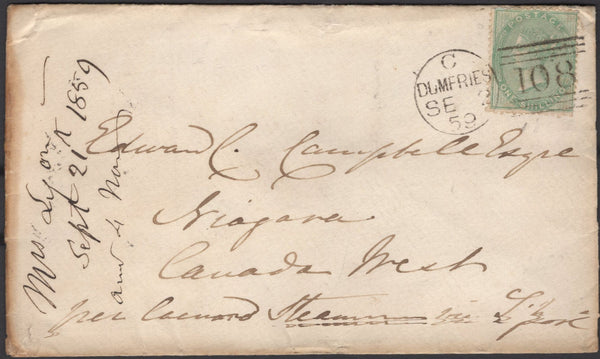 Mrs Lyon
Sept 21st 1859
and 4 Nov
C
DUMFRIES
SE
59
POSTAGE
108
ONE SHILLING
Edward C. Campbell Esqre
Niagara
Canada West
per Cunard Steamer via L'pool